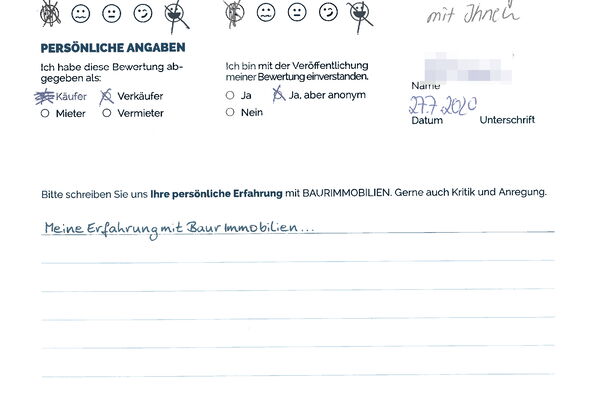 mit Ihnen
PERSÖNLICHE ANGABEN
Ich habe diese Bewertung ab-
gegeben als:
Käufer Verkäufer
Mieter Vermieter
Ich bin mit der Veröffentlichung
meiner Bewertung einverstanden.
Ja Ja, aber anonym
Nein
Name
27.7.2020
Datum Unterschrift
Bitte schreiben Sie uns Ihre persönliche Erfahrung mit BAURIMMOBILIEN. Gerne auch Kritik und Anregung.
Meine Erfahrung mit Baur Immobilien...